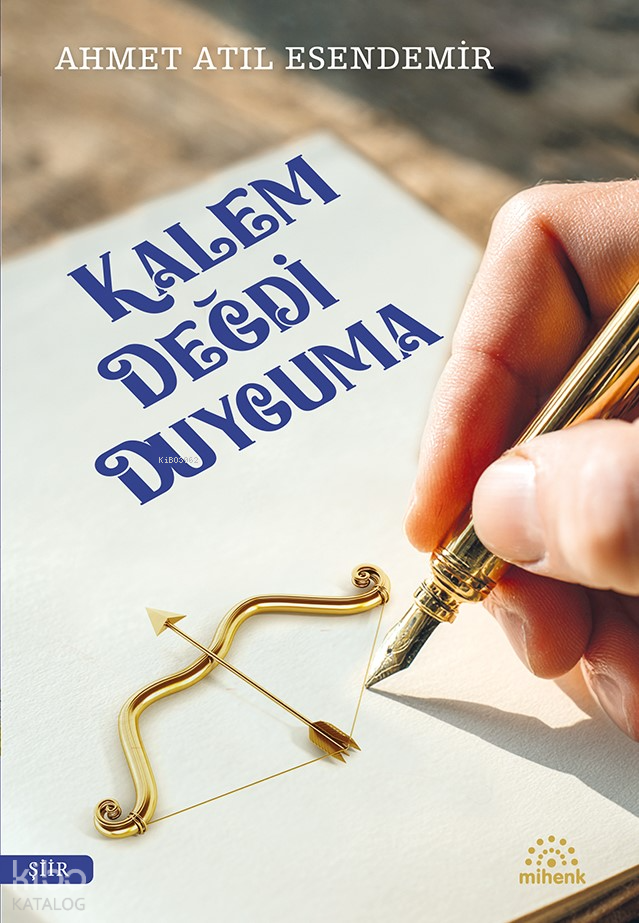 AHMET ATIL ESENDEMİR
KALEM
DEĞDİ
DUYGUMA
KİBO3962
ŞİİR
kitap
KATALOG
mihenk